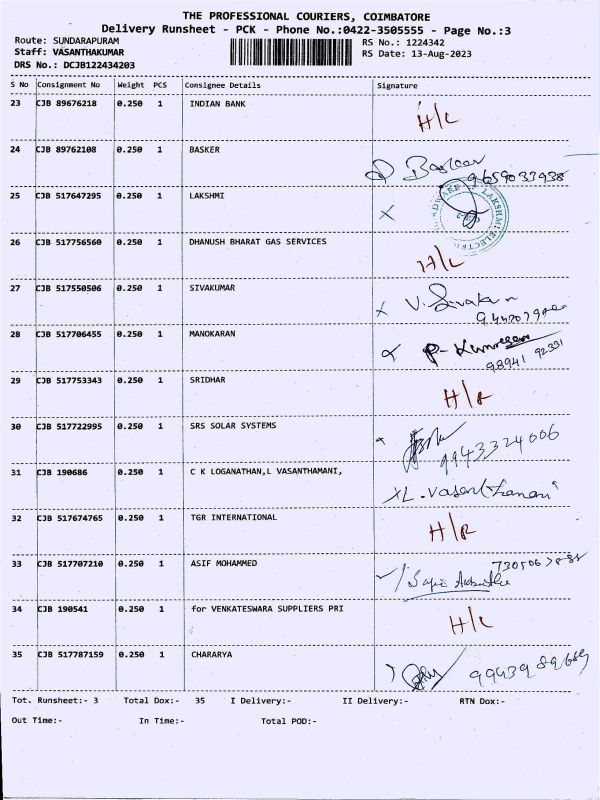 THE PROFESSIONAL COURIERS, COIMBATORE
Delivery Runsheet - PCK - Phone No.:0422-3505555 - Page No.:3
Route: SUNDARAPURAM RS No.: 1224342
Staff: VASANTHAKUMAR RS Date: 13-Aug-2023
DRS No.: DCJB122434203
S No Consignment No Weight PCS Consignee Details Signature
23 CJB 89676218 0.250 1 INDIAN BANK H/L
24 CJB 89762108 0.250 1 BASKER Baskar 9659033938
25 CJB 517647295 0.250 1 LAKSHMI X LAKSHMI ELECTRI
26 CJB 517756560 0.250 1 DHANUSH BHARAT GAS SERVICES H/L
27 CJB 517550506 0.250 1 SIVAKUMAR X V. Sivaku
28 CJB 517706455 0.250 1 MANOKARAN P- 98941 92331
29 CJB 517753343 0.250 1 SRIDHAR H/R
30 CJB 517722995 0.250 1 SRS SOLAR SYSTEMS 9943324006
31 CJB 190686 0.250 1 C K LOGANATHAN,L VASANTHAMANI, XL.Vasanthamani
32 CJB 517674765 0.250 1 TGR INTERNATIONAL H/R
33 CJB 517707210 0.250 1 ASIF MOHAMMED
34 CJB 190541 0.250 1 for VENKATESWARA SUPPLIERS PRI H/L
35 CJB 517787159 0.250 1 CHARARYA 9943989689
Tot. Runsheet:- 3 Total Dox:- 35 I Delivery:- II Delivery:- RTN Dox:-
Out Time:- In Time:- Total POD:-